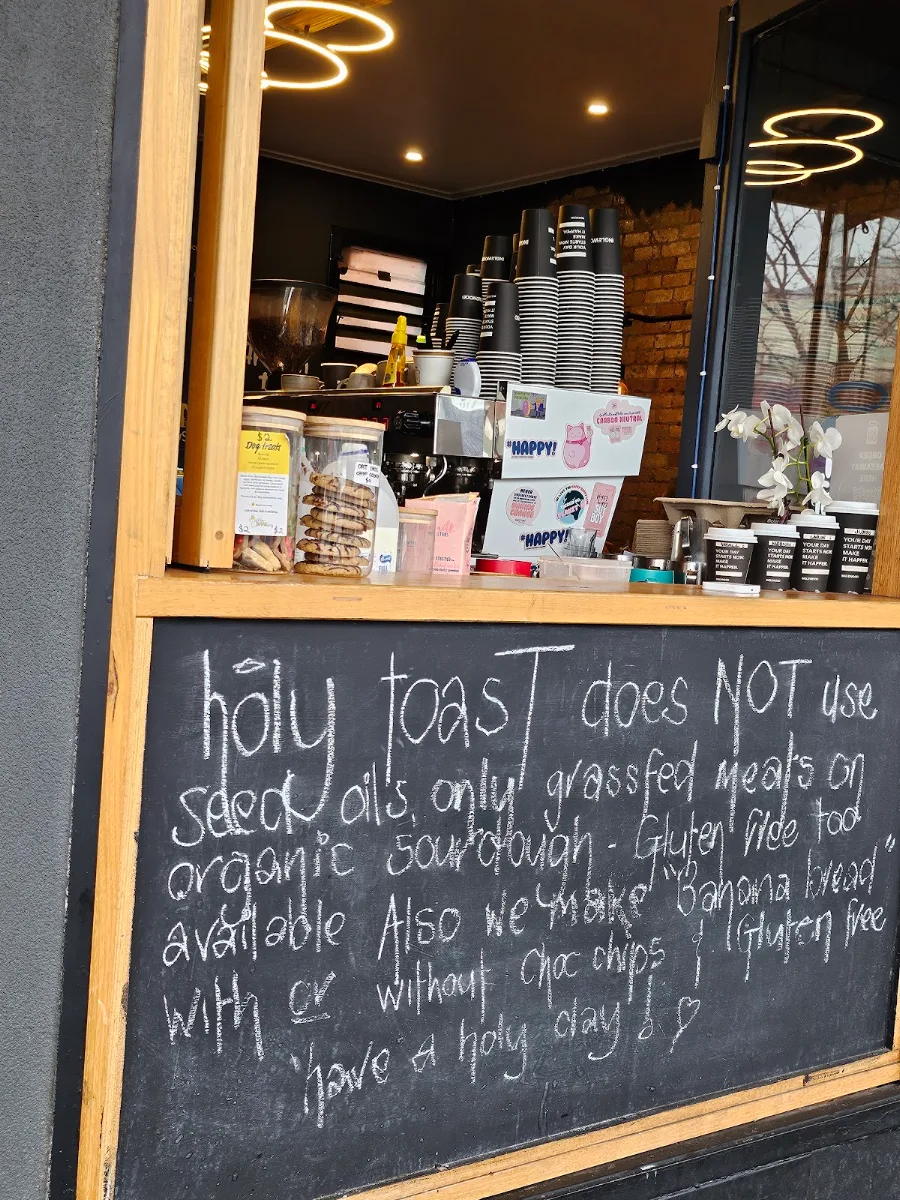 $2
Dog treats
$2
$2
#HAPPY!
CARBON NEUTRAL
#HAPPY!
YOUR DAY
STARTS NOW.
MAKE
IT HAPPEN.
YOUR DAY
STARTS NOW.
MAKE
IT HAPPEN.
YOUR DAY
STARTS NOW.
MAKE
IT HAPPEN.
YOUR DAY
STARTS NOW.
MAKE
IT HAPPEN.
holy toasT does NOT use
seed oils, only grassfed meats on
organic sourdough - Gluten free too
available Also we make "Banana bread"
with or without choc chips & Gluten free
have a holy day! ♡